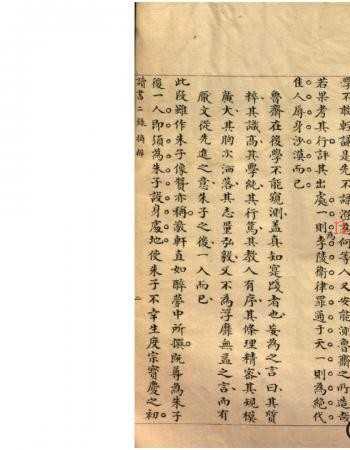 學不敢輕議是先不識澄爲何等人又安能測魯齋之所造哉
若果考其行評其出處一則李陵衛律罪通于天一則為絶代
佳人辱身沙漠而已
魯齋在後學不能窺測蓋真知寔踐者也妄為之言曰其質
粹其識高其學純其行篤其教人有序其條理精審其規模
廣大其胸次洒落其志量弘毅又不為浮靡無益之言而有
厭文從先進之意朱子之後一人而已
此段雖作朱子像贊亦稱薛軒直如醉夢中所撰既尊為朱子
後一人即須為朱子設身處地使朱子不幸生度宗寶慶之初
讀書二錄摘辨
二